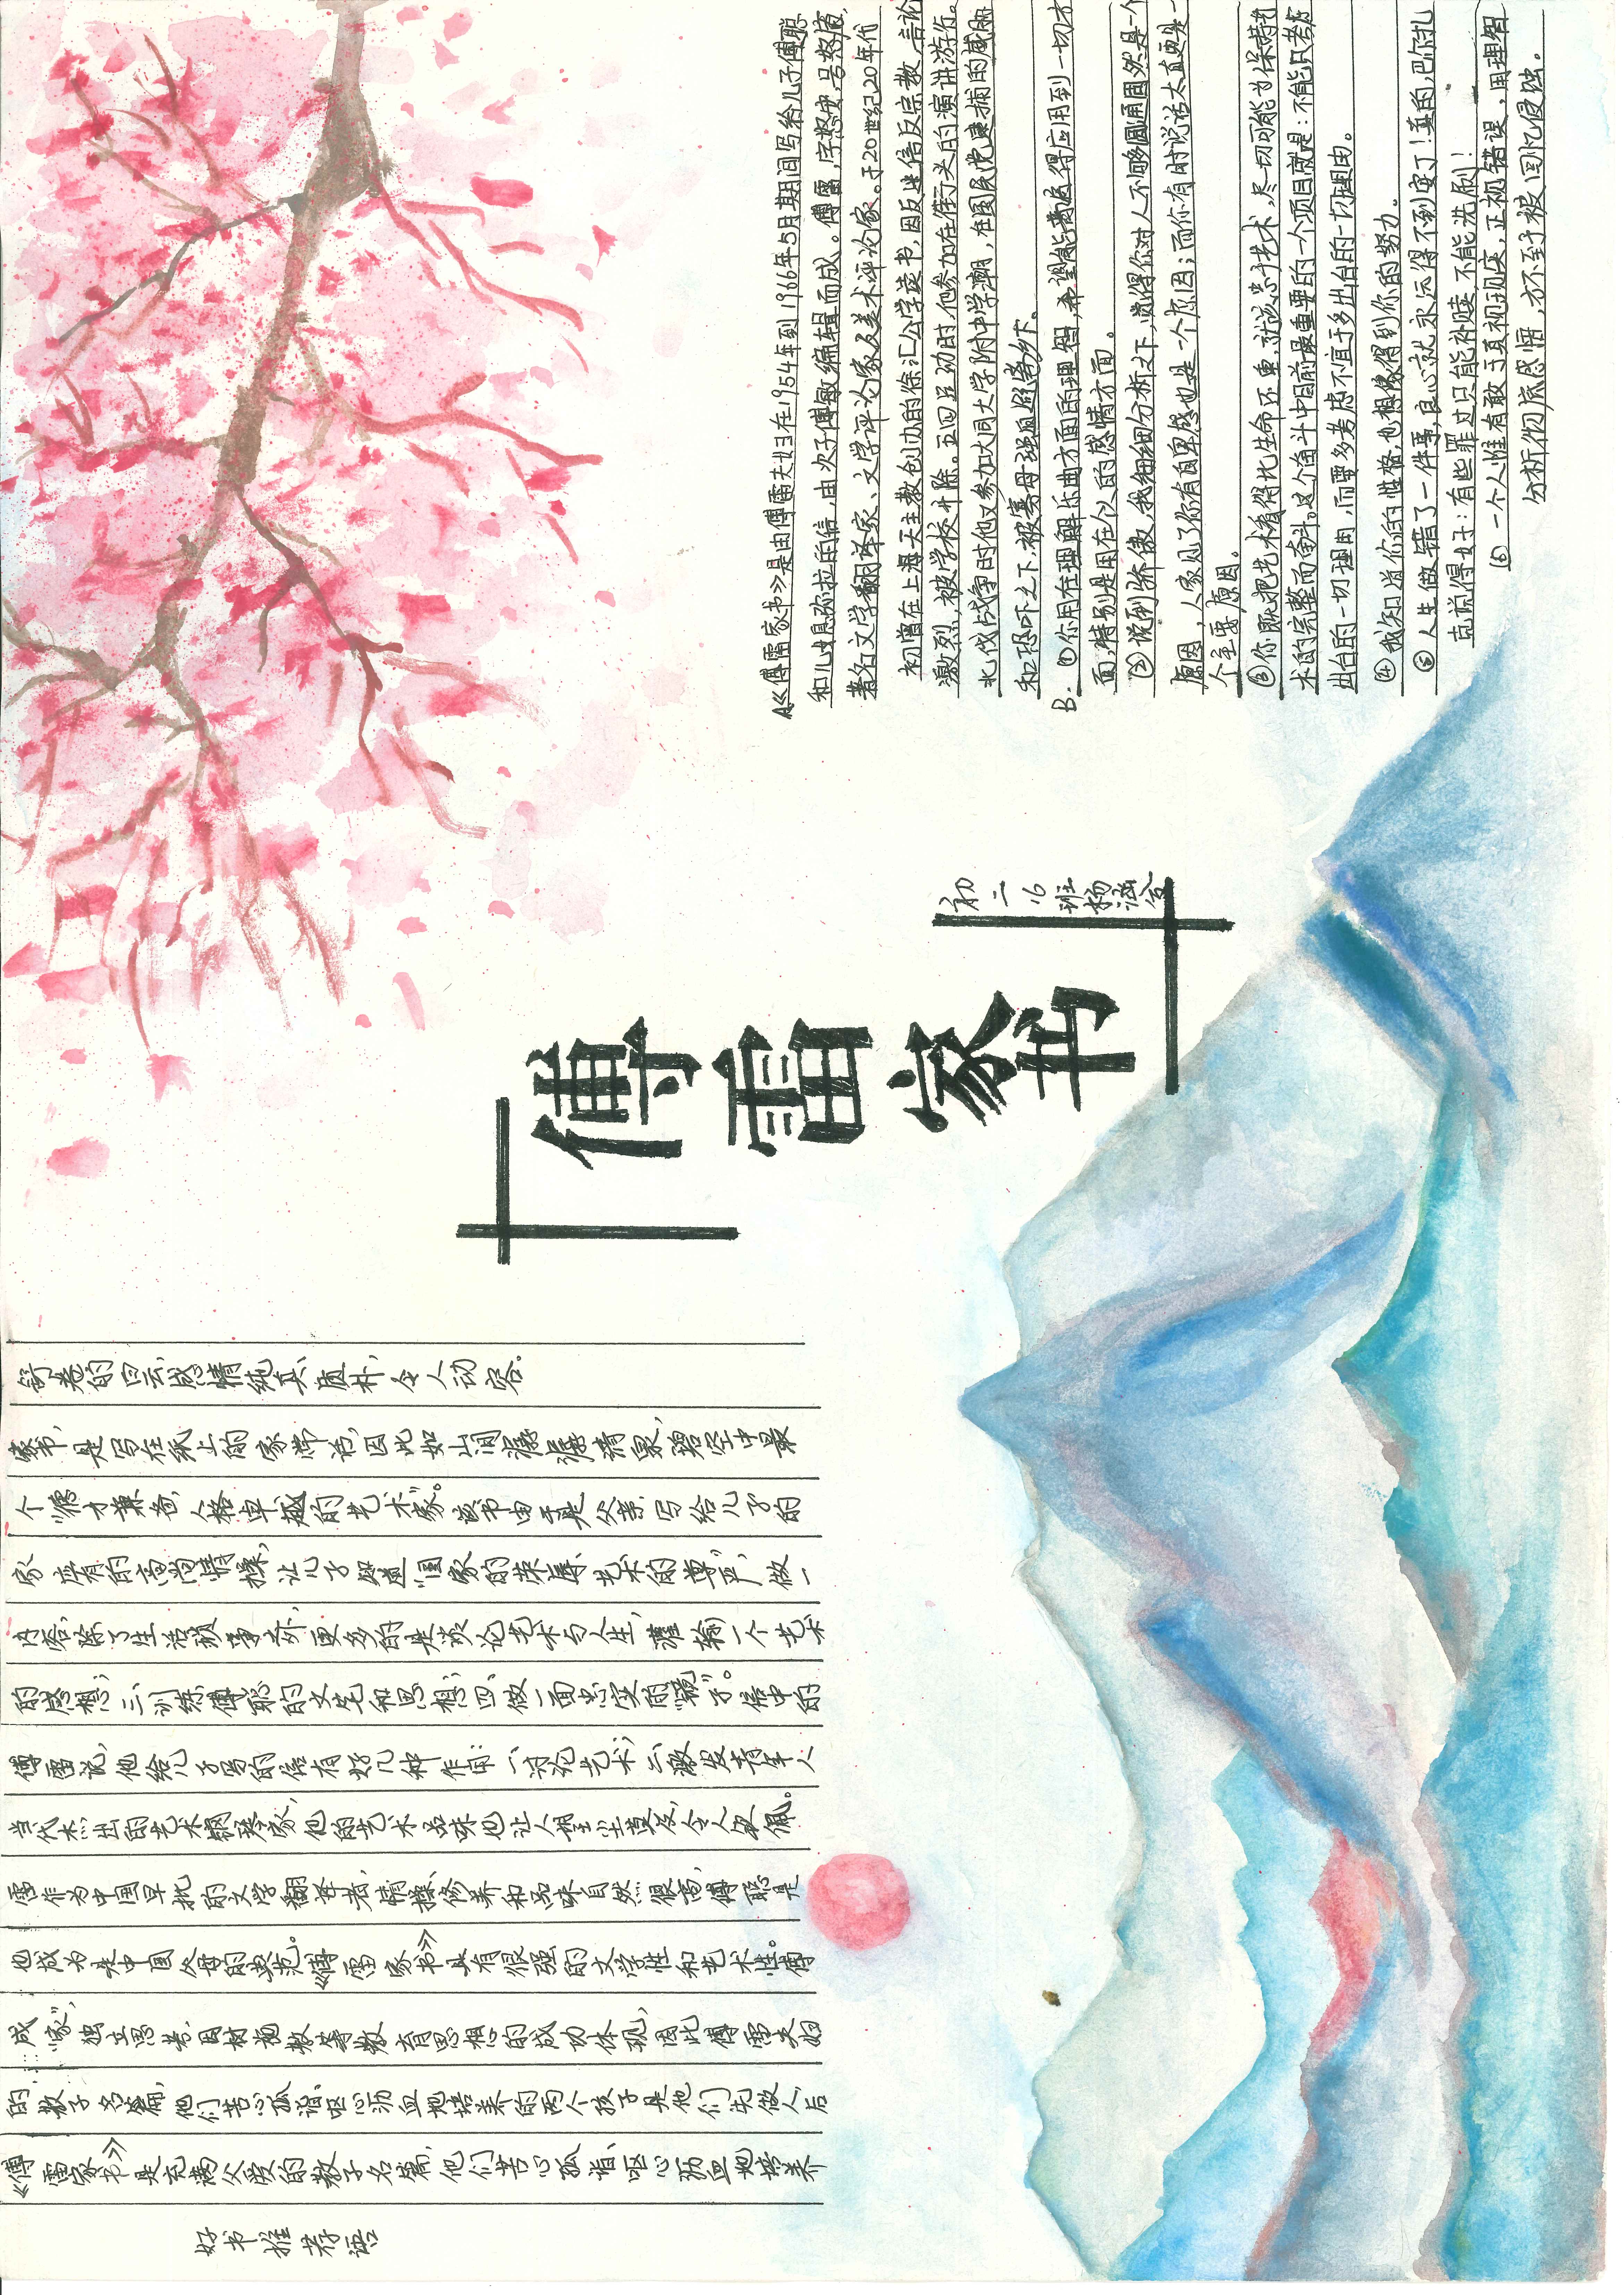 好书推荐语
《傅雷家书》是充满父爱的教子名篇,他们苦心孤诣、呕心沥血地培养
的教子名篇,他们苦心孤诣、呕心沥血地培养的两个孩子是他们先做人、后
成“家”,独立思考,因材施教等教育思想的成功体现,因此傅雷夫妇
也成为是中国父母的典范。《傅雷家书》具有很强的文学性和艺术性。傅
雷作为中国早批的文学翻译者,情操、修养和品味自然很高,傅聪是
当代杰出的艺术钢琴家,他的艺术品味也让人望尘莫及,令人钦佩。
傅雷说,他给儿子写的信有好几种作用:一、讨论艺术;二、激发青年人
的感想;三、训练傅聪的文笔和思想;四、做一面忠实的“镜子”。信中的
内容,除了生活琐事之外,更多的是谈论艺术与人生,灌输一个艺术
家应有的高尚情操,让儿子知道“国家的荣辱、艺术的尊严”,做一
个“德才兼备,人格卓越的艺术家”。该书由于是父亲写给儿子的
家书,是写在纸上的家常话,因此如山间潺潺清泉,碧空中最
舒卷的白云,感情纯真、质朴,令人动容。
傅雷家书
初二16班杨涵
A《傅雷家书》是由傅雷夫妇在1954年到1966年5月期间写给儿子傅聪
和儿媳弥拉的信,由次子傅敏编辑而成。傅雷,字怒安,号怒庵,
著名文学翻译家、文学评论家及美术评论家。于20世纪20年代
初曾在上海天主教创办的徐汇公学读书,因反迷信反宗教,言论
激烈,被学校开除。五四运动时,他参加在街头的演讲游行。
北伐战争时他又参加大同大学附中学潮,在国民党逮捕的威胁
和恐吓之下,被寡母强迫避离乡下。
B.①你用在理解乐曲方面的理智,希望能高远得应用到一切方
面,特别是用在个人的感情方面。
②说到骄傲,我细细分析之下,觉得你对人不够圆通固然是一个
原因,人家见了你有自卑感也是一个原因;而你有时说话太直更是一
个主要原因。
③你既把艺术看得比生命还重,就该忠于艺术,尽一切可能为保持艺
术的完整而奋斗。这个奋斗中目前最重要的一个项目就是:不能只考虑
出台的一切理由,而要多考虑不宜于多出台的一切理由。
④我知道你的性格,也想像得到你的努力。
⑤人生做错了一件事,良心就永远得不到安了!真的,巴尔扎
克说得好:有些罪过只能补赎,不能洗刷!
⑥一个人惟有敢于真视现实,正视错误,用理智
分析彻底感悟,才不至于被回忆侵蚀。